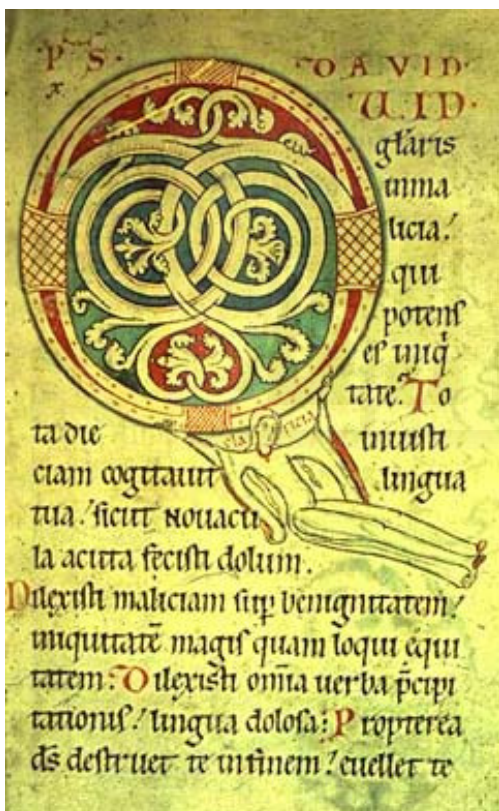 ·P S· DAVID·
x UID·
gl̄aris
inma
licia!
qui
potens
es iniq
tate. To
cla ricia
ta die iniusti
ciam cogitauit lingua
tua! sicut nouacu
la acuta fecisti dolum.
Dilexisti maliciam sup̄ benignitatem!
iniquitatē magis quam loqui equi
tatem: Dilexisti om̄ia uerba p̄cipi
tationis! lingua dolosa: Propterea
d̄s destruet te infinem! euellet te